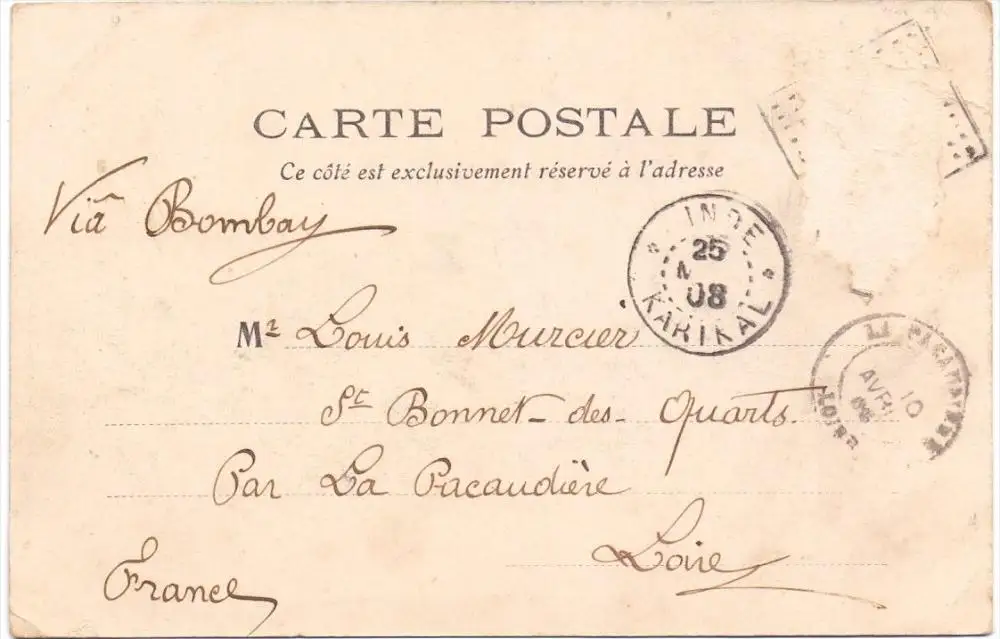 CARTE POSTALE
Ce côté est exclusivement réservé à l'adresse
Viâ Bombay
INDE
25
08
KARIKAL
Mr Louis Murcier
AVRIL 10
LOIRE
St Bonnet-des-Quarts.
Par La Pacaudière
Loire
France